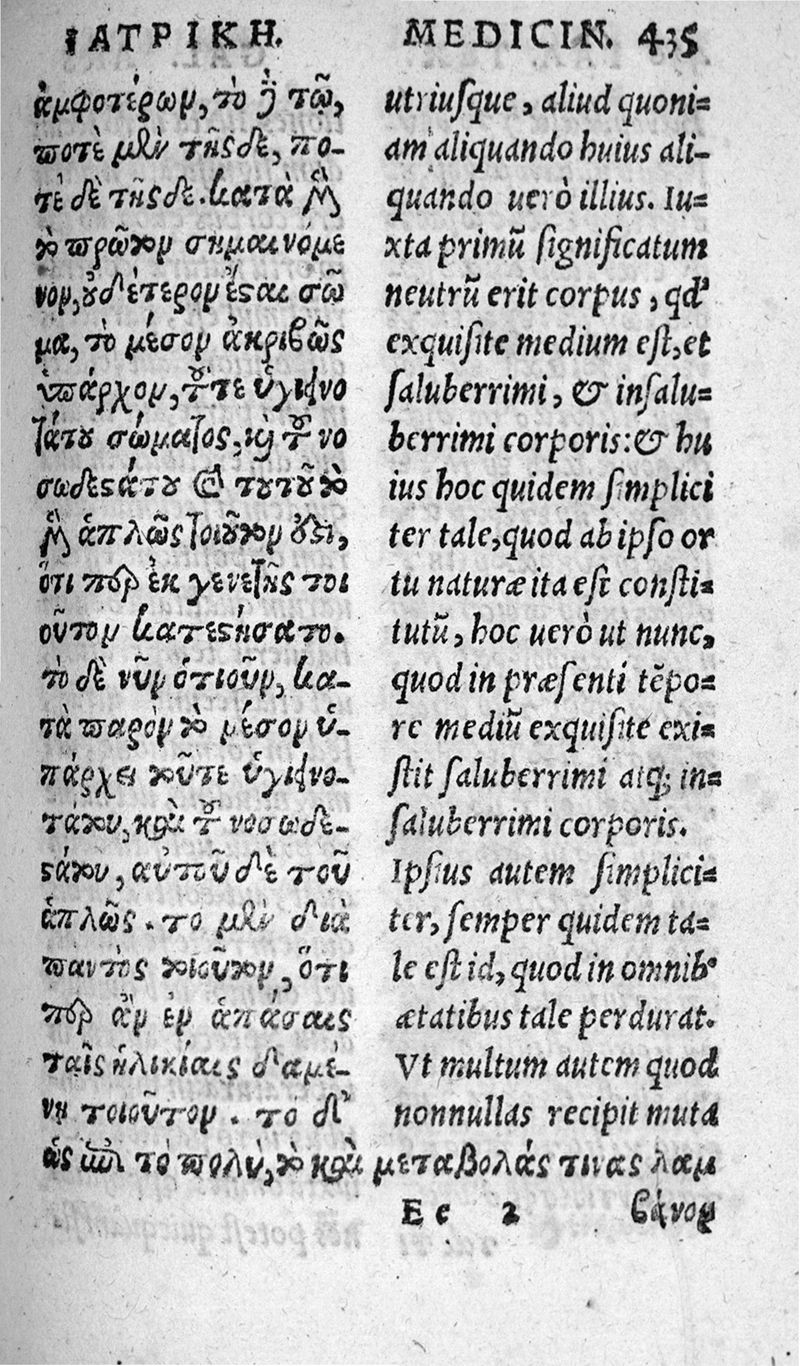 ΙΑΤΡΙΚΗ.
ἀμφοτέρων, τὸ δὲ τῷ,
ποτὲ μὲν τῆςδε, πο-
τὲ δὲ τῆςδε. κατὰ μὲν
τὸ πρῶτον σημαινόμε
νον, οὐδέτερον ἔσται σῶ
μα, τὸ μέσον ἀκριβῶς
ὑπάρχον, τοῦτε ὑγιεινο
τάτου σώματος, καὶ τοῦ νο
σωδεστάτου καὶ τούτου τὸ
μὲν ἁπλῶς τοιοῦτον ἐστι,
ὅτι περ ἐκ γενετῆς τοι
οῦτον κατεστήσατο.
τὸ δὲ νῦν ὁτιοῦν, κα-
τὰ παρὸν τὸ μέσον ὑ-
πάρχει τοῦτε ὑγιεινο-
τάτου, καὶ τοῦ νοσωδε-
στάτου, αὐτοῦ δὲ τοῦ
ἁπλῶς. το μὲν διὰ
παντὸς τοιοῦτον, ὅτι
περ ἂν ἐν ἁπάσαις
ταῖς ἡλικίαις διαμέ-
νῃ τοιοῦτον. τὸ δ'
ὡς ἐπι τὸ πολὺ, τὸ καὶ μεταβολάς τινας λαμ
βάνον
MEDICIN. 435
utriuſque, aliud quoni=
am aliquando huius ali-
quando uerò illius. Iu=
xta primũ ſignificatum
neutrũ erit corpus, qd'
exquiſite medium eſt, et
ſaluberrimi, & inſalu=
berrimi corporis: & hu
ius hoc quidem ſimplici
ter tale, quod ab ipſo or
tu naturæ ita eſt conſti=
tutũ, hoc uerò ut nunc,
quod in præſenti tẽpo=
re mediũ exquiſite exi=
ſtit ſaluberrimi atq; in=
ſaluberrimi corporis.
Ipſius autem ſimplici=
ter, ſemper quidem ta=
le eſt id, quod in omnib'
ætatibus tale perdurat.
Vt multum autem quod
nonnullas recipit muta
Ee 2